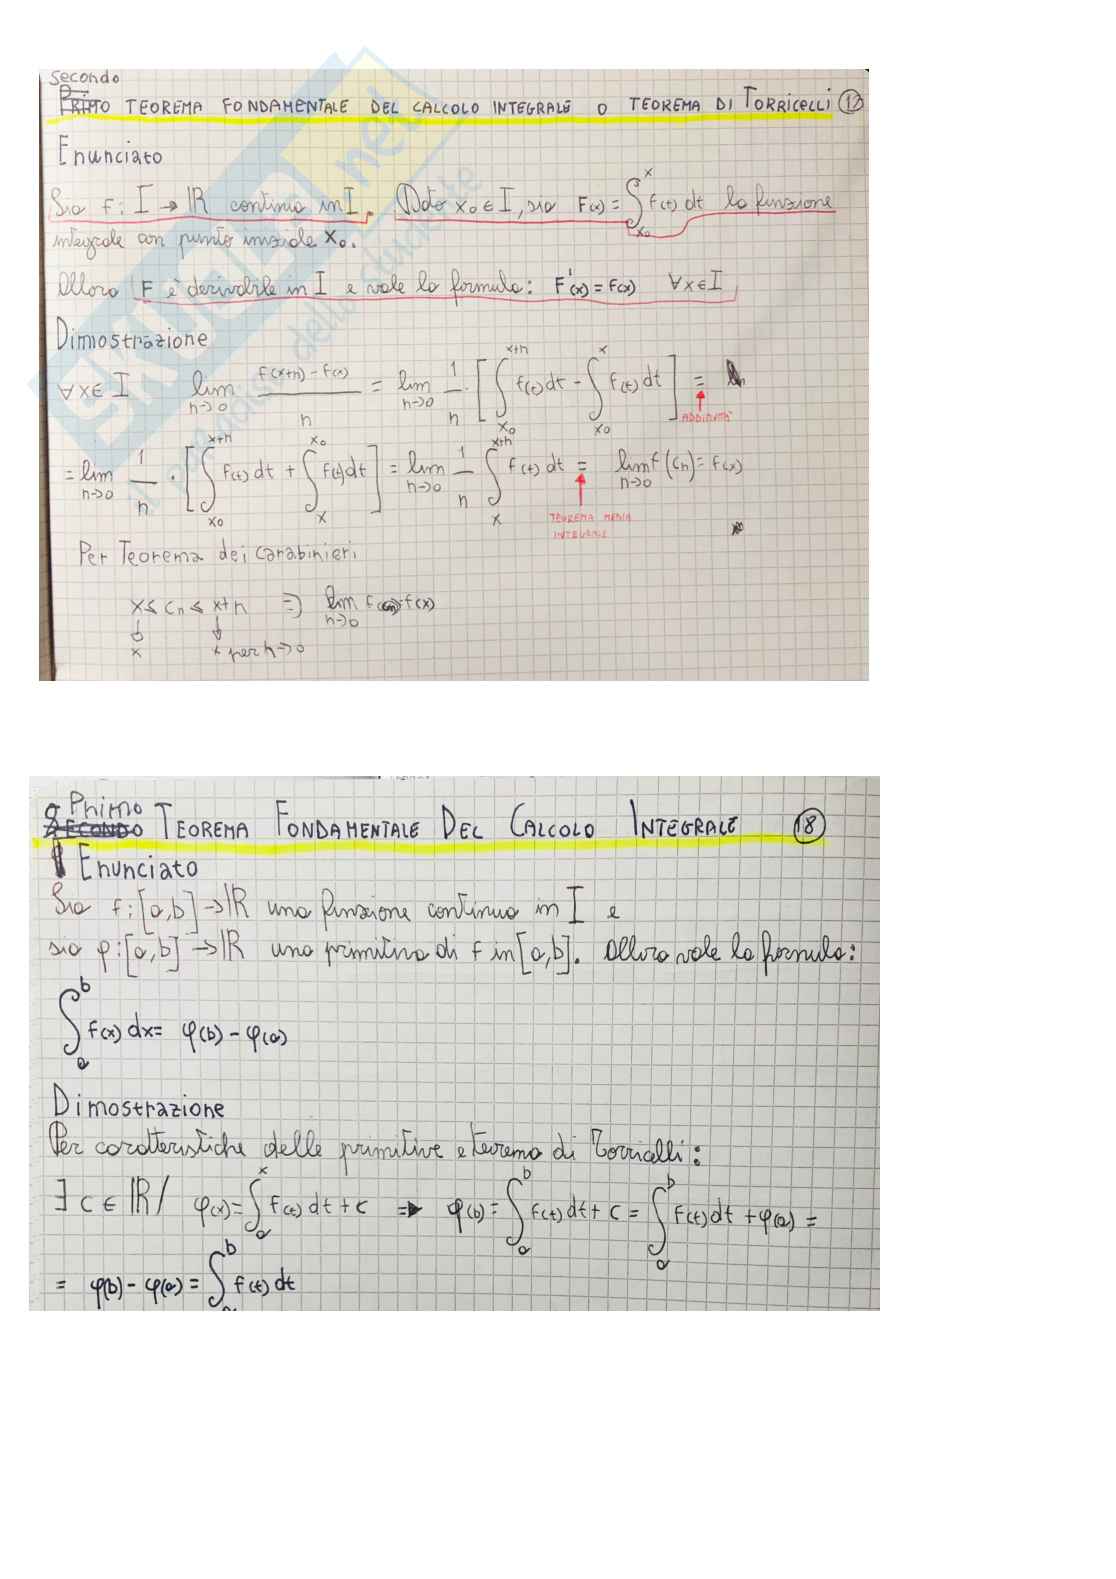 Secondo
Primo TEOREMA FONDAMENTALE DEL CALCOLO INTEGRALE O TEOREMA DI TORRICELLI 17
Enunciato
Sia f: I → ℝ continua in I. Dato x₀ ∈ I, sia F(x) = ∫_{x₀}^{x} f(t) dt la funzione
integrale con punto iniziale x₀.
Allora F è derivabile in I e vale la formula: F'(x) = f(x) ∀x∈I
Dimostrazione
∀x∈I lim_{h→0} F(x+h) - F(x) / h = lim_{h→0} 1/h · [∫_{x₀}^{x+h} f(t) dt - ∫_{x₀}^{x} f(t) dt] =
ADDITIVITÀ
= lim_{h→0} 1/h · [∫_{x₀}^{x+h} f(t) dt + ∫_{x}^{x₀} f(t) dt] = lim_{h→0} 1/h ∫_{x}^{x+h} f(t) dt = lim_{h→0} f(cₕ) = f(x)
TEOREMA MEDIA
INTEGRALE
Per Teorema dei carabinieri
x ≤ cₕ ≤ x+h ⇒ lim_{h→0} f(cₕ)=f(x)
↓ ↓
x x per h→0
Primo
SECONDO TEOREMA FONDAMENTALE DEL CALCOLO INTEGRALE 18
Enunciato
Sia f: [a,b] → ℝ una funzione continua in I e
sia φ: [a,b] → ℝ una primitiva di f in [a,b]. Allora vale la formula:
∫_{a}^{b} f(x) dx = φ(b) - φ(a)
Dimostrazione
Per caratteristiche delle primitive e teorema di Torricelli:
∃ c ∈ ℝ / φ(x) = ∫_{a}^{x} f(t) dt + c ⇒ φ(b) = ∫_{a}^{b} f(t) dt + c = ∫_{a}^{b} f(t) dt + φ(a) =
= φ(b) - φ(a) = ∫_{a}^{b} f(t) dt